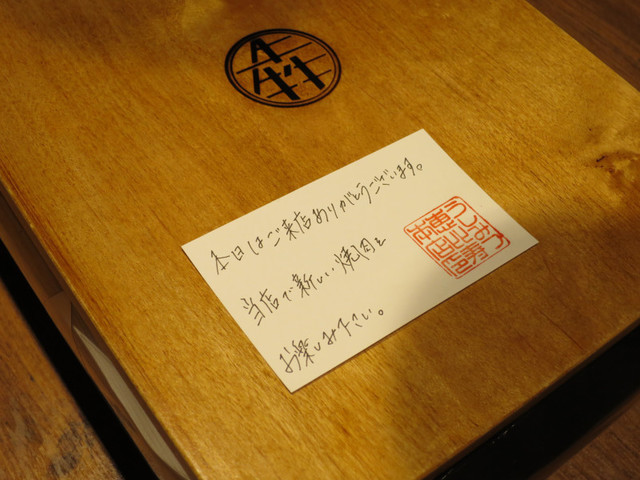 本日はご来店ありがとうございます。
当店で新しい焼肉を
お楽しみ下さい。